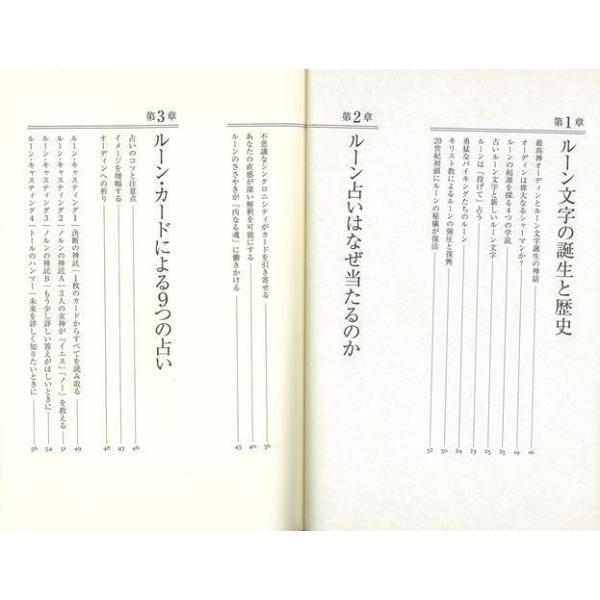 第1章
ルーン文字の誕生と歴史
最高神オーディンとルーン文字誕生の神話 16
オーディンは偉大なるシャーマンか? 19
ルーンの起源を探る4つの学説 23
古いルーン文字と新しいルーン文字 25
ルーンは「投げて」占う 27
勇猛なバイキングたちのルーン 29
キリスト教によるルーンの弾圧と復興 30
20世紀初頭にルーンの秘儀が復活 32
第2章
ルーン占いはなぜ当たるのか
不思議なシンクロニシティがカードを引き寄せる 36
あなたの直感が深い解釈を可能にする 40
ルーンのささやきが「内なる魂」に働きかける 43
第3章
ルーン・カードによる9つの占い
占いのコツと注意点 46
イメージを増幅する 47
オーディンへの祈り 48
ルーン・キャスティング1 決断の神託 1枚のカードからすべてを読み取る 49
ルーン・キャスティング2 ノルンの神託A 3人の女神が「イエス」「ノー」を教える 51
ルーン・キャスティング3 ノルンの神託B もう少し詳しい答えがほしいときに 54
ルーン・キャスティング4 トールのハンマー 未来を詳しく知りたいときに 56